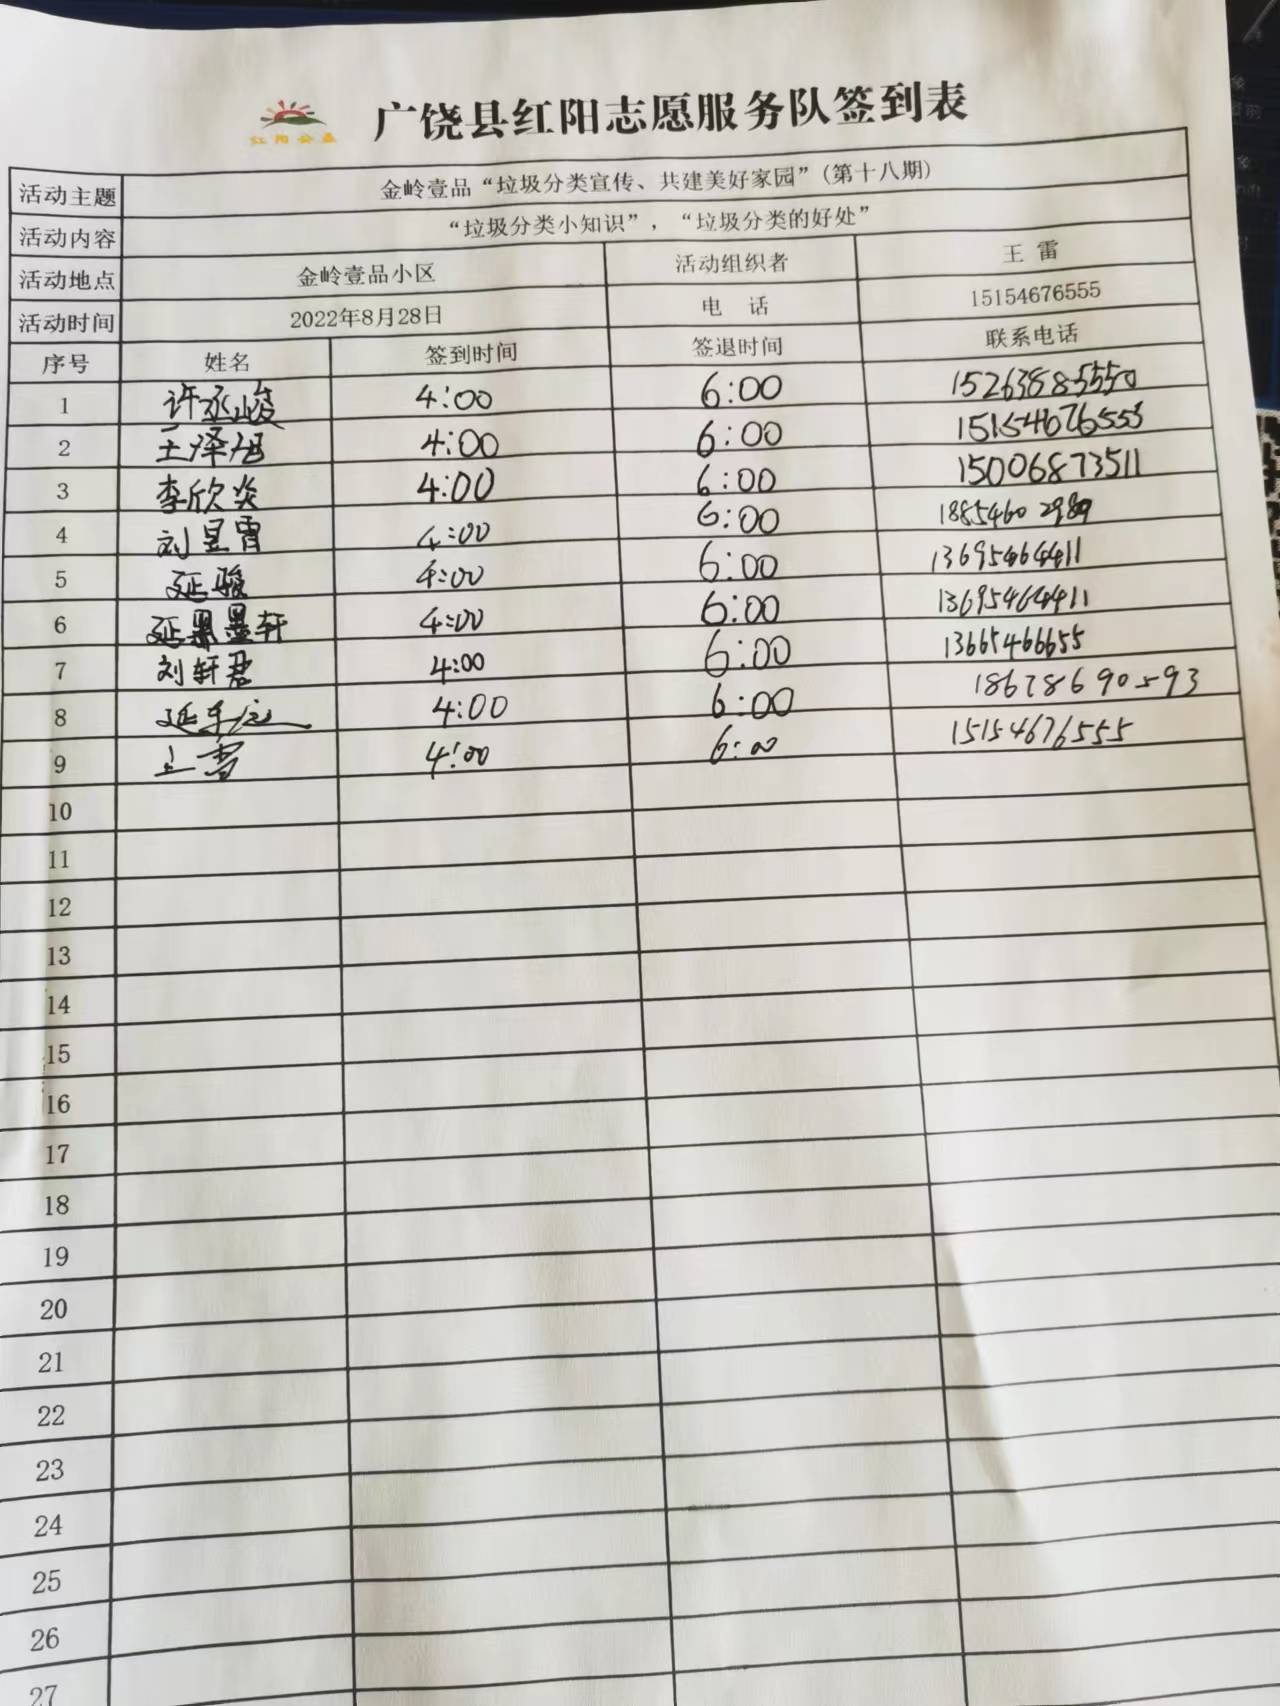 红阳公益
广饶县红阳志愿服务队签到表
活动主题 金岭壹品“垃圾分类宣传、共建美好家园”(第十八期)
活动内容 “垃圾分类小知识”，“垃圾分类的好处”
活动地点 金岭壹品小区 活动组织者 王 雷
活动时间 2022年8月28日 电 话 15154676555
序号 姓名 签到时间 签退时间 联系电话
1 许丞峻 4:00 6:00
2 王泽旭 4:00 6:00 15154676555
3 李欣炎 4:00 6:00 15006873511
4 刘昱霄 4:00 6:00
5 延骏 4:00 6:00 13695464411
6 延 墨轩 4:00 6:00 13695464411
7 刘轩君 4:00 6:00 13665466655
8 延 4:00 6:00 18678690593
9 王雷 4:00 6:00 15154676555
10
11
12
13
14
15
16
17
18
19
20
21
22
23
24
25
26
27